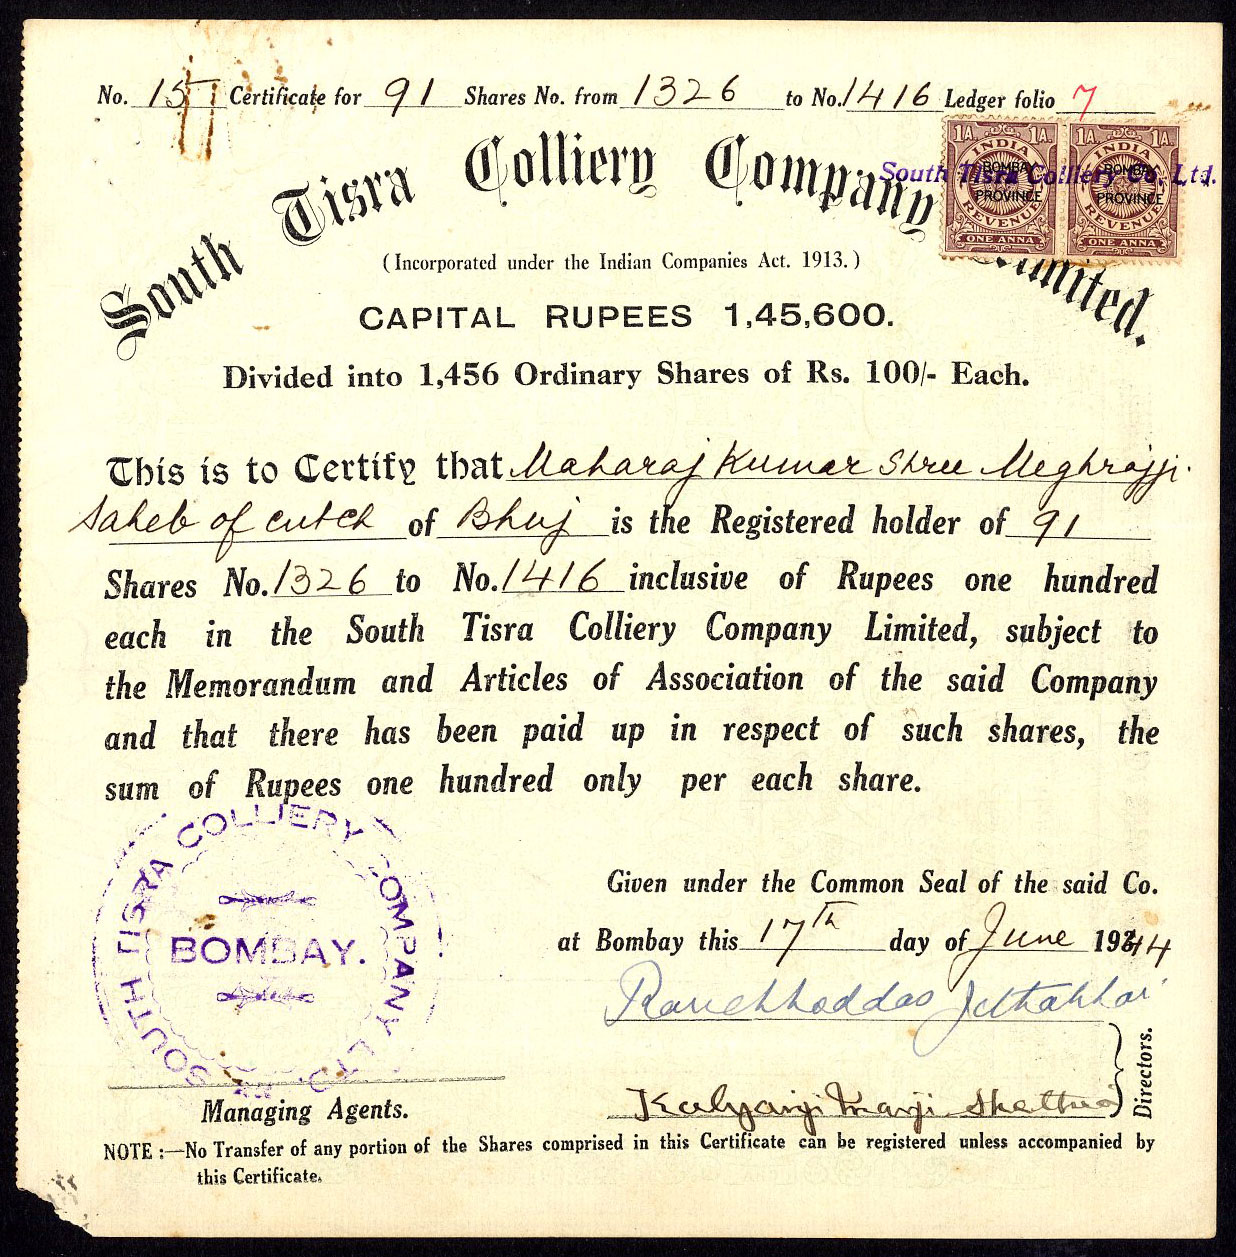 No. 15 Certificate for 91 Shares No. from 1326 to No. 1416 Ledger folio 7
South Tisra Colliery Company Limited.
1A. 1A. INDIA BOMBAY PROVINCE REVENUE ONE ANNA
1A. 1A. INDIA BOMBAY PROVINCE REVENUE ONE ANNA
South Tisra Colliery Co. Ltd.
(Incorporated under the Indian Companies Act. 1913.)
CAPITAL RUPEES 1,45,600.
Divided into 1,456 Ordinary Shares of Rs. 100/- Each.
This is to Certify that Maharaj Kumar Shree Meghrajji
Saheb of Cutch of Bhuj is the Registered holder of 91
Shares No. 1326 to No. 1416 inclusive of Rupees one hundred
each in the South Tisra Colliery Company Limited, subject to
the Memorandum and Articles of Association of the said Company
and that there has been paid up in respect of such shares, the
sum of Rupees one hundred only per each share.
SOUTH TISRA COLLIERY COMPANY LTD.
BOMBAY.
Given under the Common Seal of the said Co.
at Bombay this 17th day of June 1944
Ranchhoddas Jethabhai
Kalyanji Mavji
Directors.
Managing Agents.
NOTE :—No Transfer of any portion of the Shares comprised in this Certificate can be registered unless accompanied by
this Certificate.